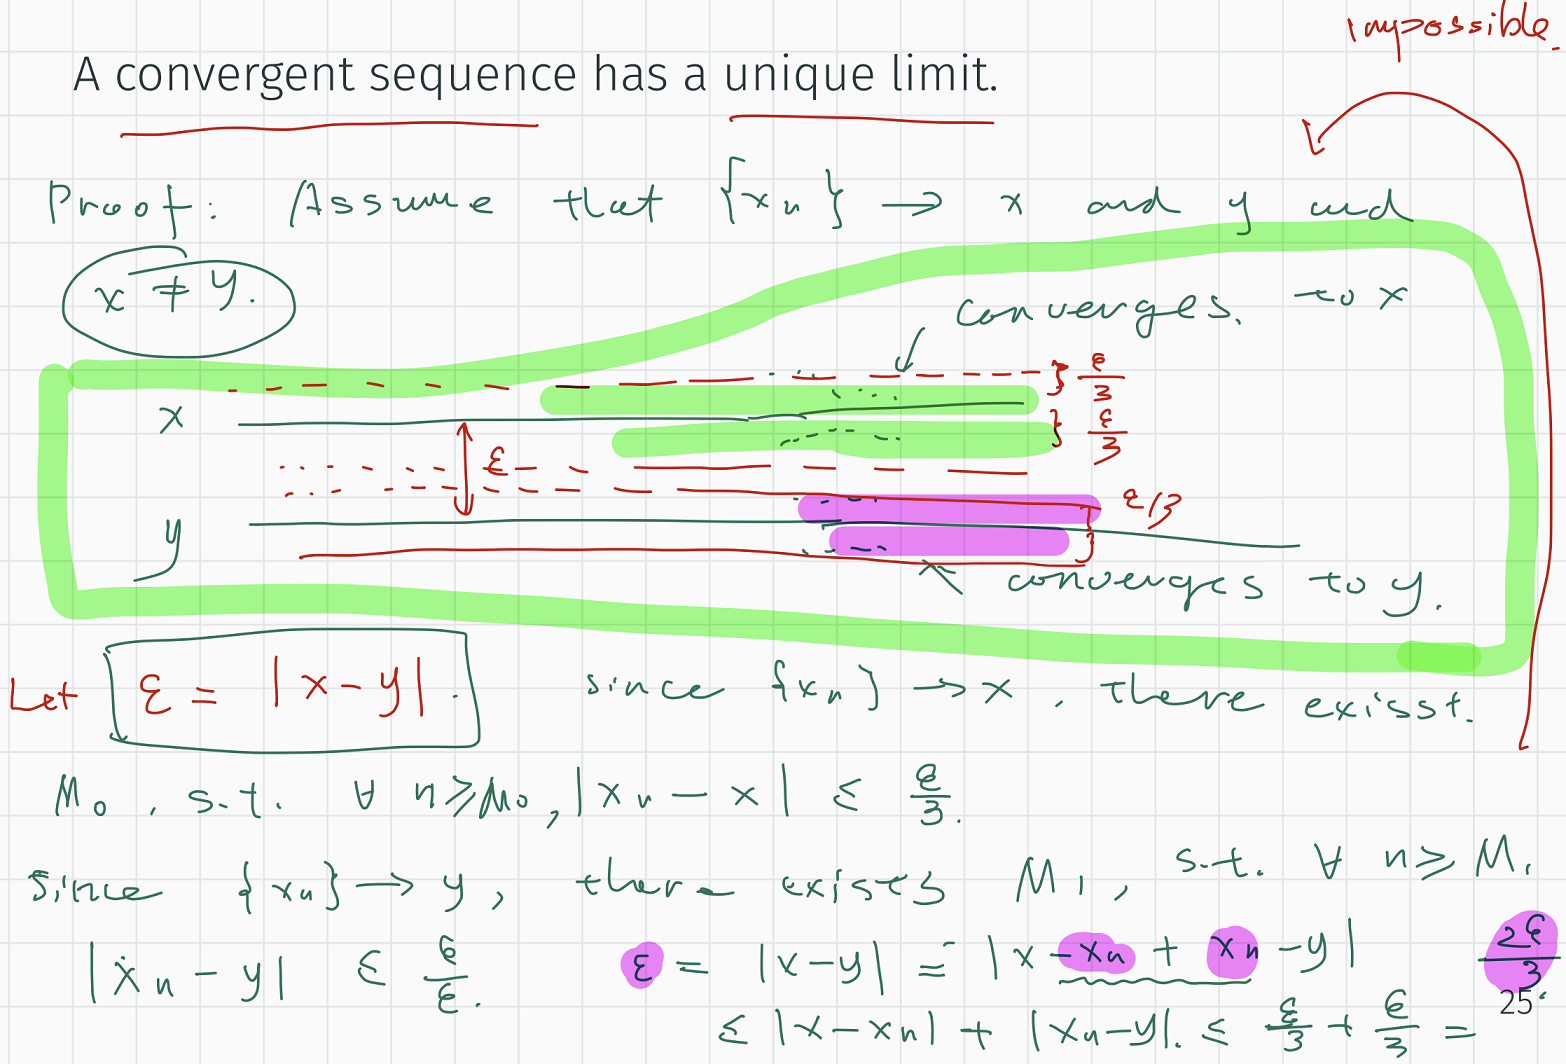 impossible.
A convergent sequence has a unique limit.
Proof: Assume that {xₙ} → x and y and
x ≠ y.
converges. to x
} ε/3
x
} ε/3
ε
ε/3
y
converges to y.
Let ε = |x-y|. since {xₙ} → x, there exisst.
M₀, s.t. ∀ n ≥ M₀, |xₙ - x| ≤ ε/3.
Since {xₙ} → y, there exists M₁, s.t. ∀ n ≥ M₁
|xₙ - y| ≤ ε/ε. ε = |x-y| = |x - xₙ + xₙ - y| 2ε/3.
≤ |x - xₙ| + |xₙ - y|. ≤ ε/3 + ε/3 =
25